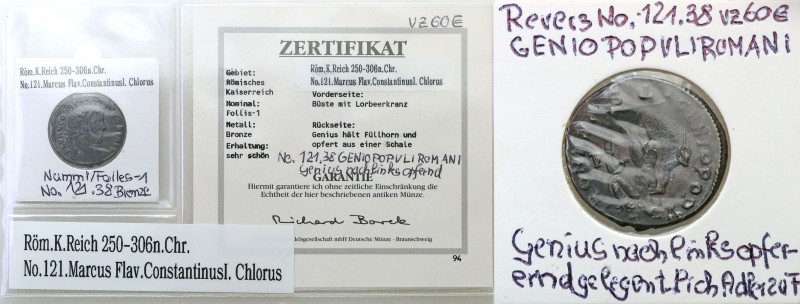 Röm.K.Reich 250-306n.Chr.
No.121.Marcus Flav.ConstantinusI. Chlorus
Nummi/Folles-1
No. 121.38 Bronze
Röm.K.Reich 250-306n.Chr.
No.121.Marcus Flav.ConstantinusI. Chlorus
VZ60€
ZERTIFIKAT
Gebiet:
Römisches
Kaiserreich
Nominal:
Follis-1
Metall:
Bronze
Erhaltung:
sehr schön
Röm.K.Reich 250-306n.Chr.
No.121.Marcus Flav.ConstantinusI. Chlorus
Vorderseite:
Büste mit Lorbeerkranz
Rückseite:
Genius hält Füllhorn und
opfert aus einer Schale
No. 121.38 GENIOPOPVLIROMANI
Genius nach links opfernd
GARANTIE
Hiermit garantiere ich ohne zeitliche Einschränkung die
Echtheit der hier beschriebenen antiken Münze.
Richard Borek
handelsgesellschaft mbH Deutsche Münze · Braunschweig
94
Revers No,.121.38 VZ60€
GENIOPOPVLIROMANI
Genius nach links opfer-